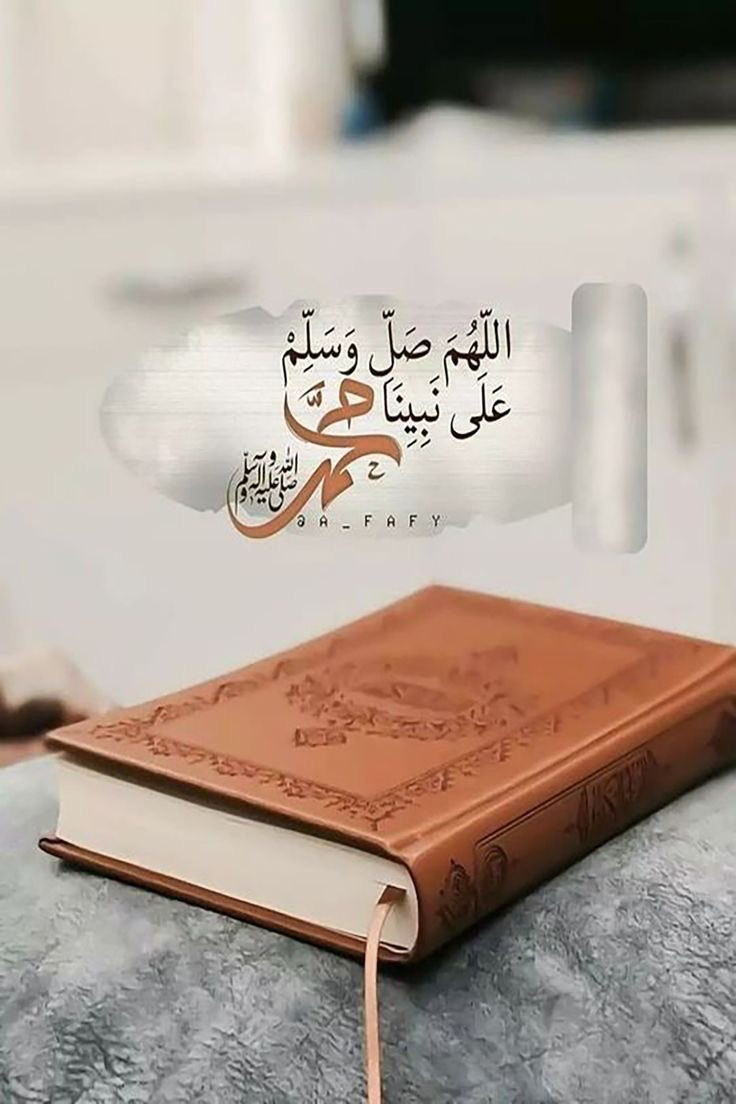 اللّهُمَ صَلِّ وَسَلِّمْ
عَلَى نَبِينَا
محمَّد
صلى الله عليه وآله وسلم
@A_FAFY